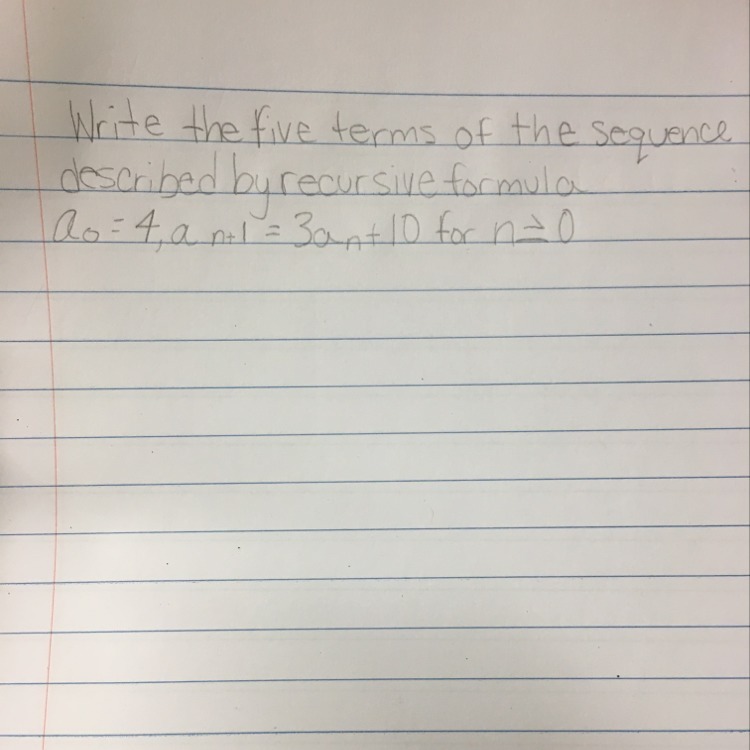 Write the five terms of the sequence
described by recursive formula
a₀ = 4, a n+1 = 3aₙ + 10 for n ≥ 0